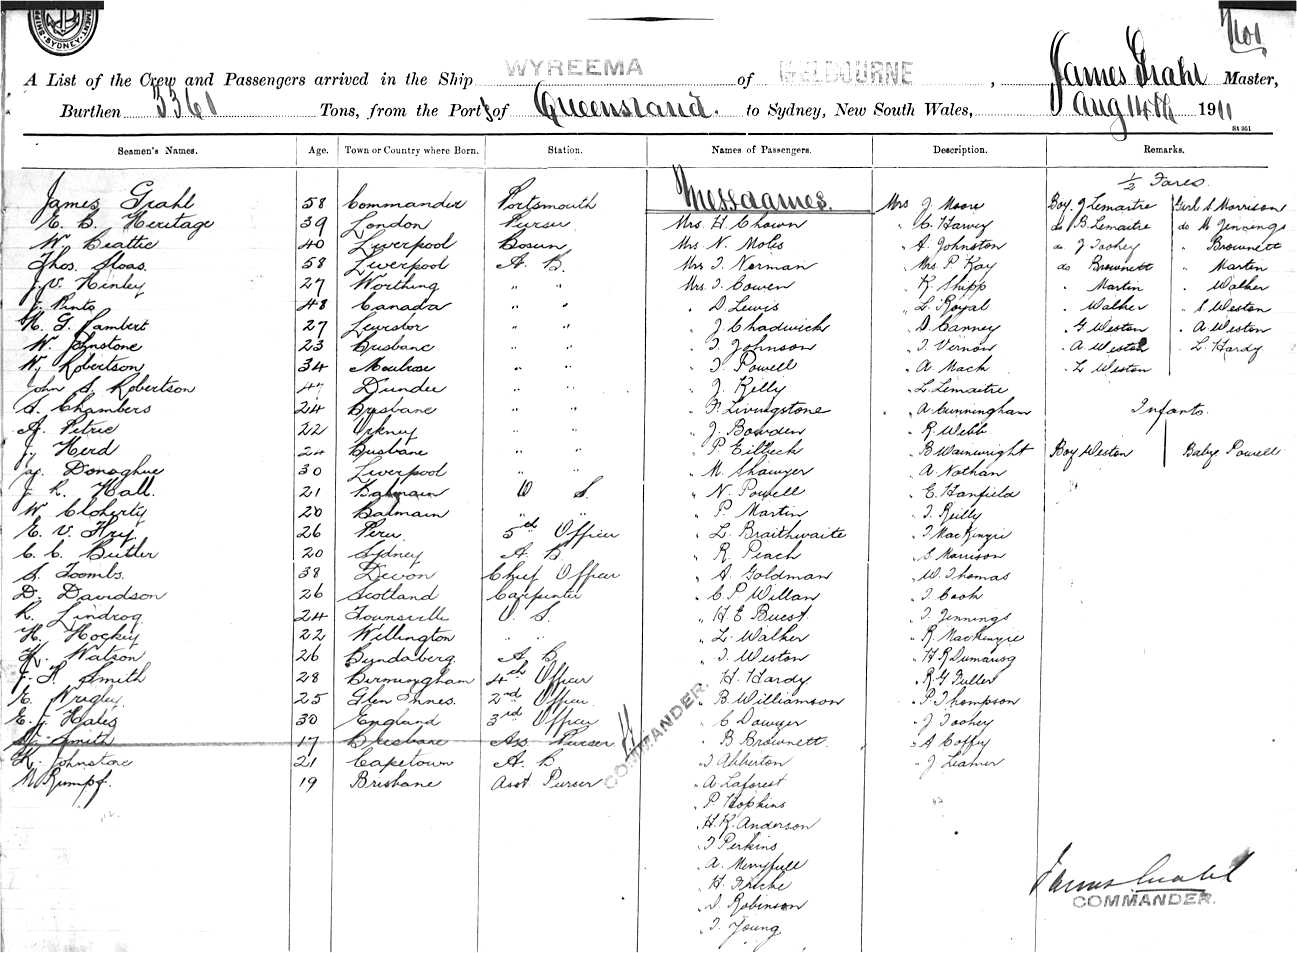 SYDNEY
A List of the Crew and Passengers arrived in the Ship WYREEMA of MELBOURNE, James Grahl Master,
Burthen 3361 Tons, from the Port s of Queensland. to Sydney, New South Wales, Aug 14th 1911
Seamen's Names. Age. Town or Country where Born. Station. Names of Passengers. Description. Remarks.
½ Fares.
James Grahl 58 Commander Portsmouth Messdames. Mrs J. Moore Boy J Lemaitre Girl S Morrison
E. B. Heritage 39 London Purser Mrs. H. Chown " C. Harvey do B. Lemaitre do M Jennings
W. Beattie 40 Liverpool Bosun Mrs. N. Moles " A. Johnston do J Toohey " Brownett
Thos. Sloas. 58 Liverpool A. B. Mrs J. Norman Mrs P. Kay do Brownett " Martin
J. V. Hinley 27 Worthing " " Mrs. J. Cowen " K. Shipp " Martin " Walker
J. Pinto 48 Canada " " " D. Lewis " L. Royal " Walker " S Weston
H. G. Lambert 27 " " " J. Chadwick " D. Canney " G Weston " A Weston
W. Johnstone 23 Brisbane " " " J. Johnson " J. Vernon " A Weston " L. Hardy
W. Robertson 34 Montrose " " " J. Powell " A. Mack " L Weston
John S. Robertson 47 Dundee " " " J. Kelly " L. Lemaitre
S. Chambers 24 Brisbane " " " F. Livingstone " A Cunningham Infants.
A. Petrie 22 Orkney " " " J. Bowden " R. Webb
J. Herd 24 Brisbane " " " P. Eilbeck " B Wainwright Boy Weston Baby Powell
Jas. Donaghue 30 Liverpool " " " M. Shawyer " A. Nothan
J. R. Hall. 21 Balmain O. S. " N. Powell " E. Hanfield
W. Cloherty 20 Balmain " " " P. Martin " J. Reilly
E. V. Fry 26 Peru 5th Officer " L. Braithwaite " J MacKenzie
C. C. Butler 20 Sydney A. B " R. Peach " S Morrison
S. Toombs. 38 Devon Chief Officer " A. Goldman " W. Thomas
D. Davidson 26 Scotland Carpenter " C. P. Willan " J. Cook
R. Lindrog 24 Townsville O. S. " H E Buest " J. Jennings
H. Hockey 22 Wellington " " " L. Walker " R. MacKenzie
H. Watson 26 Bundaberg. A. B. " J. Weston " H R Dumaresq
J. R. Smith 28 Birmingham 4th Officer " H. Hardy " R G Fuller
E. Wrigley 25 Glen Innes. 2nd Officer " B. Williamson " P. Thompson
E. J. Hales 30 England 3rd Officer " C Dowyer " J Toohey
W. Smith 17 Brisbane Ass Purser " B Brownett. " A Coffey
COMMANDER.
K. Johnstone 21 Capetown A. B " J Abberton " J Leamer
N. Rumpf. 19 Brisbane Asst Purser " A Laforest
" P. Hopkins
" H. K. Anderson
" J Perkins
" A. Merryfull
" H.
" D. Robinson
" J. Young
James Grahl
COMMANDER.